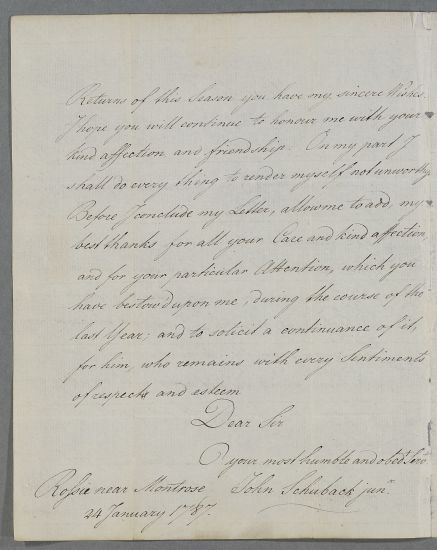 Returns of this Season you have my sincere Wishes.
I hope you will continue to honour me with your
kind affection and friendship. On my part I
shall do every thing to render myself not unworthy.
Before I conclude my Letter, allow me to add my
best thanks for all your Care and kind affection,
and for your particular Attention, which you
have bestowd upon me, during the course of the
last Year; and to solicit a continuance of it,
for him, who remains with every Sentiments
of respects and esteem
Dear Sir
your most humble and obed.t Serv.t
Rossie near Montrose John Schuback jun.r
24 January 1787.